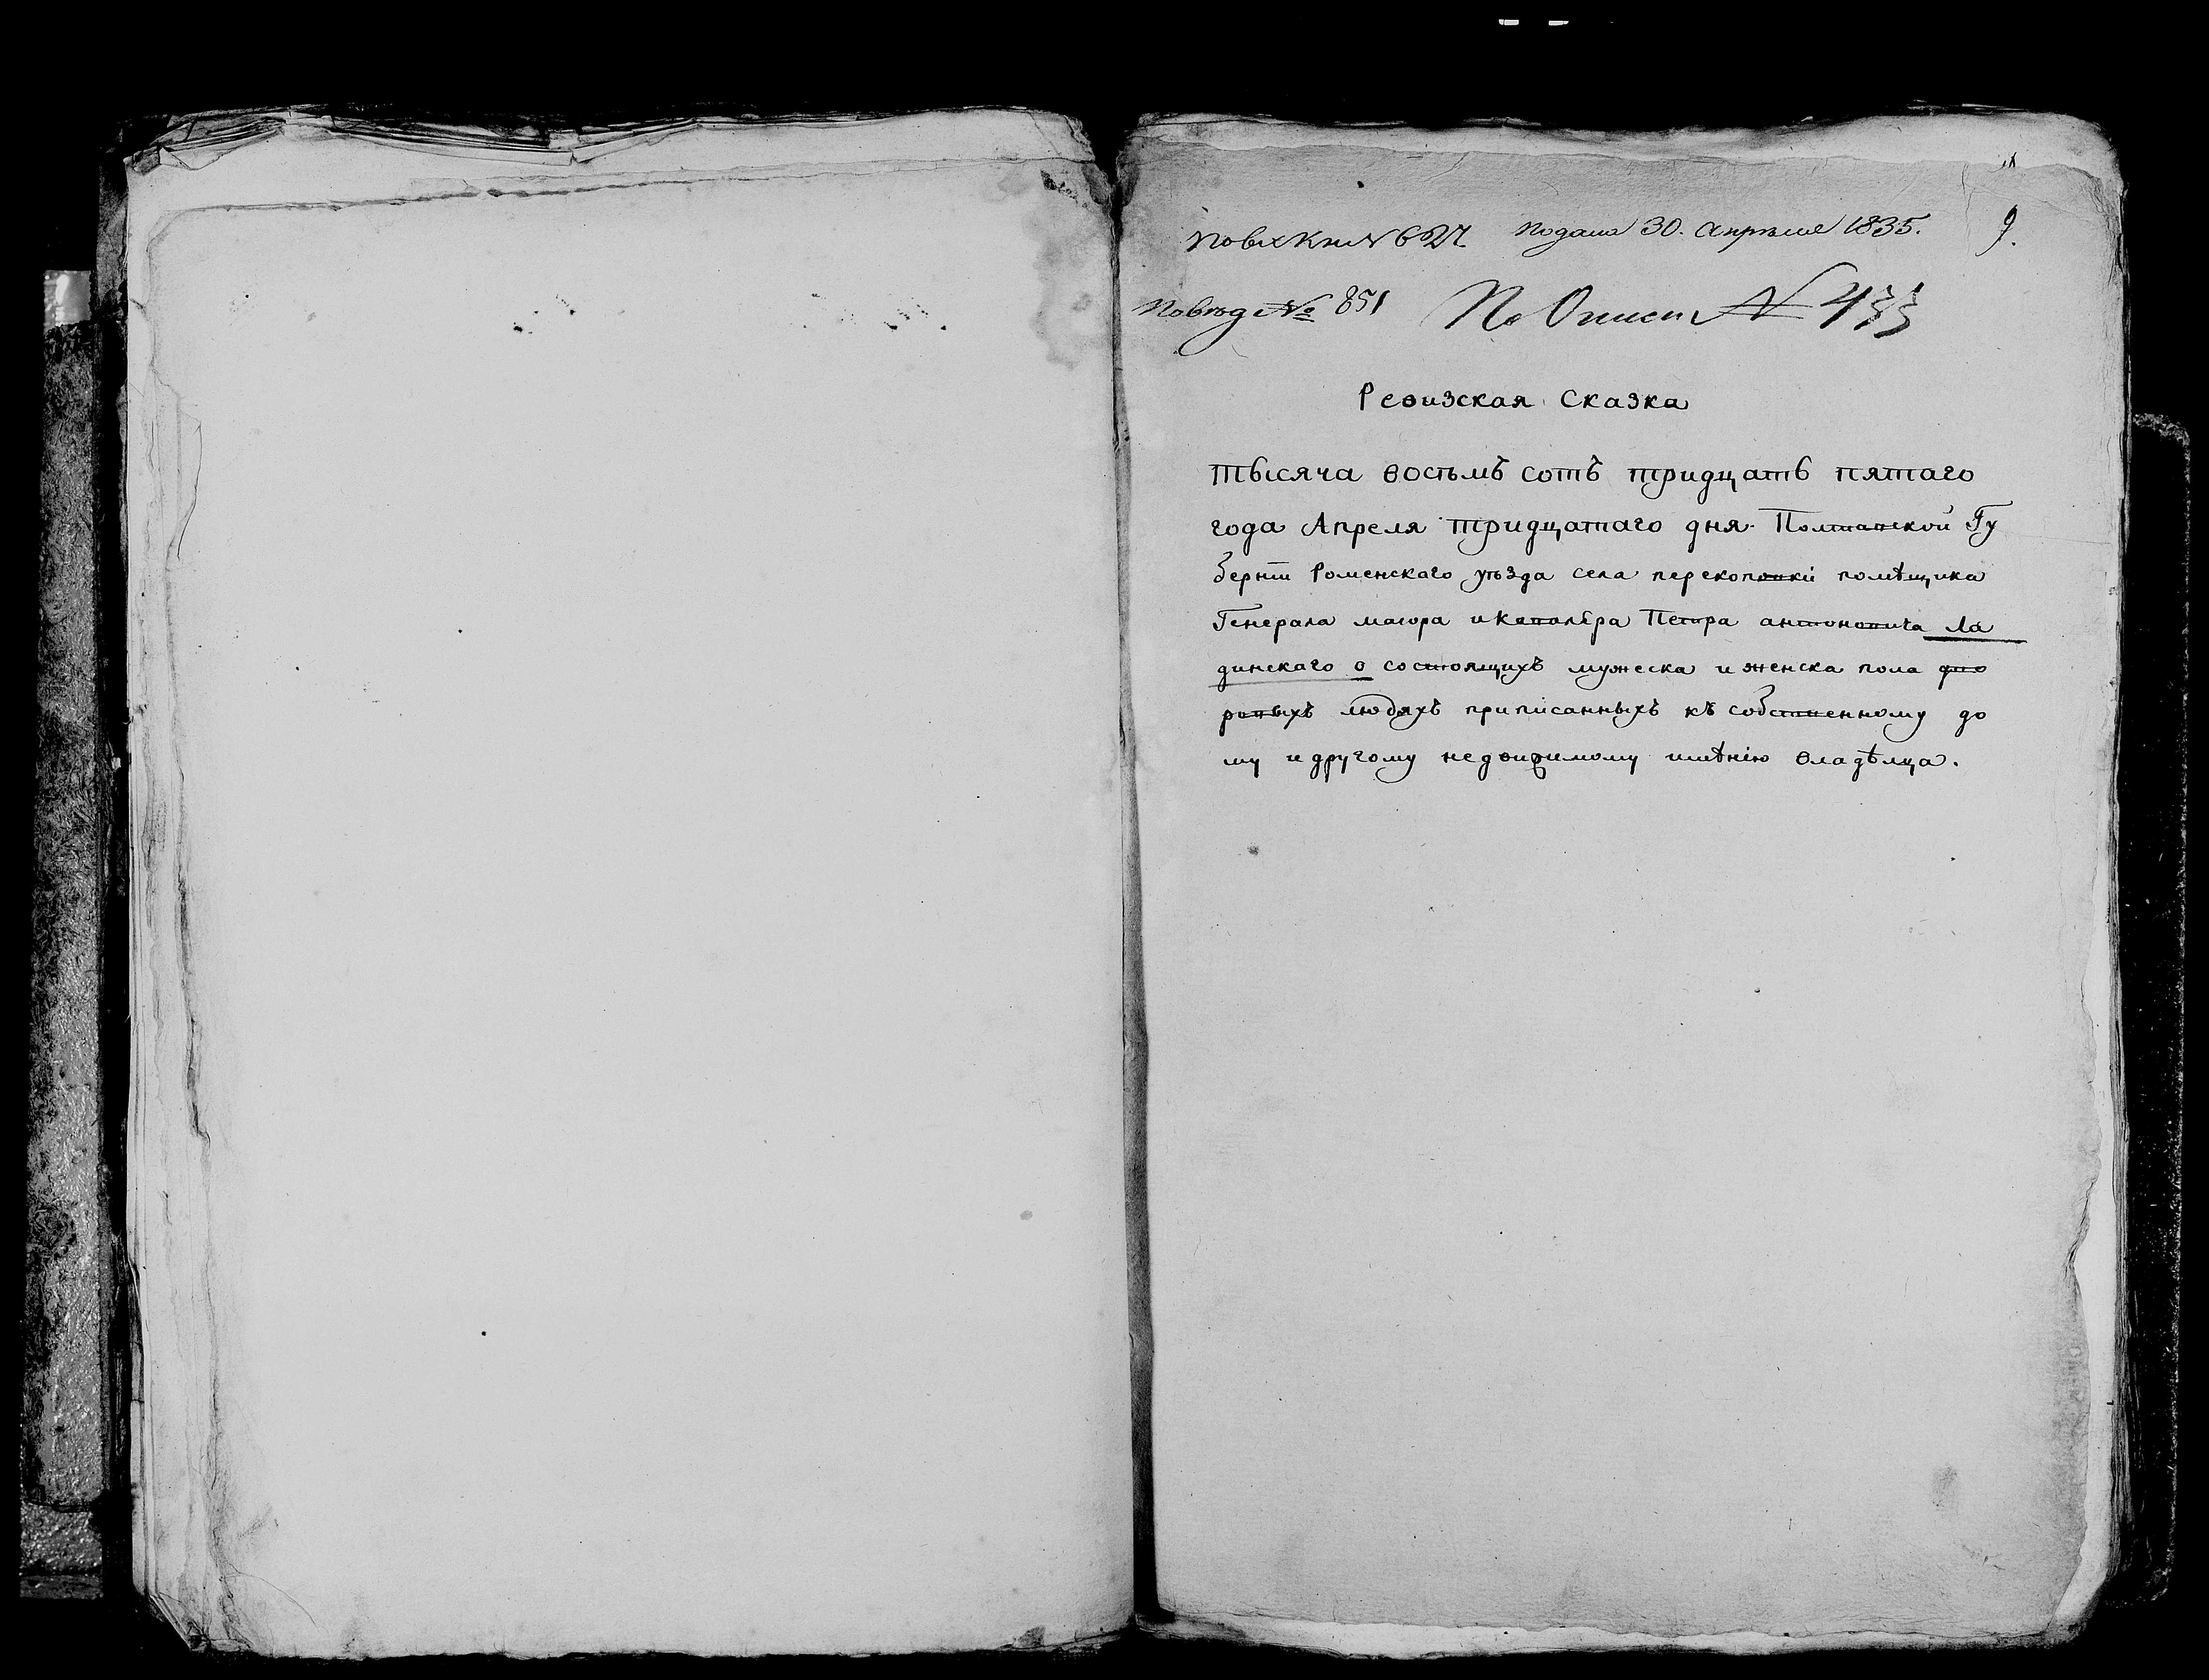 По вх Кн № 627 Подана 30. Апреля 1835. 9.
По вход № 851 По Описи № 433
Ревизская Сказка
тысяча восьмъ сотъ тридцать пятаго
года Апреля тридцатаго дня Полтавской Гу
берніи Роменскаго уѣзда села перекоповки помѣщика
Генерала маіора и Кавалера Петра антоновича Ла
динскаго о состоящихъ мужеска и женска пола дво
ровыхъ людяхъ приписанныхъ къ собственному до
му и другому недвижимому имѣнію владѣлца.